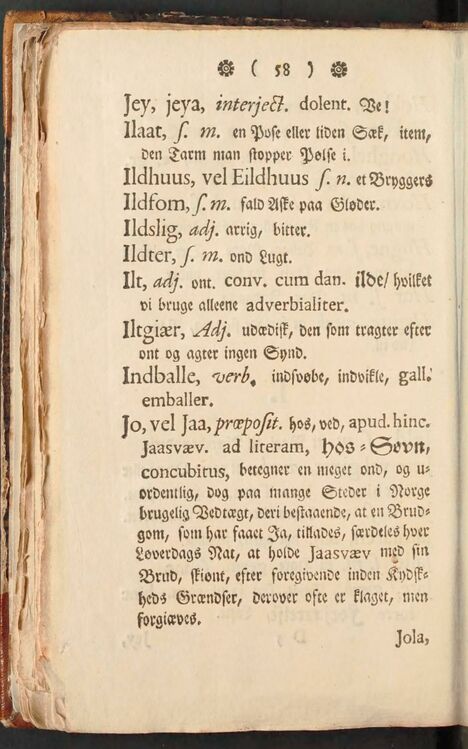 ( 58 )
Jey, jeya, interject. dolent. Ve!
Ilaat, s. m. en Pose eller liden Sæk, item,
den Tarm man stopper Pølse i.
Ildhuus, vel Eildhuus s. n. et Bryggers
Ildfom, s. m. fald Aske paa Gløder.
Ildslig, adj. arrig, bitter.
Ildter, s. m. ond Lugt.
Ilt, adj. ont. conv. cum dan. ilde/ hvilket
vi bruge alleene adverbialiter.
Iltgiær, Adj. udædisk, den som tragter efter
ont og agter ingen Synd.
Indballe, verb. indsvøbe, indvikle, gall.
emballer.
Jo, vel Jaa, præposit. hos, ved, apud. hinc.
Jaasvæv. ad literam, hos-Søvn,
concubitus, betegner en meget ond, og u-
ordentlig, dog paa mange Steder i Norge
brugelig Vedtægt, deri bestaaende, at en Brud-
gom, som har faaet Ja, tillades, særdeles hver
Løverdags Nat, at holde Jaasvæv med sin
Brud, skiønt, efter foregivende inden Kydsk-
heds Grændser, derover ofte er klaget, men
forgiæves.
Jola,